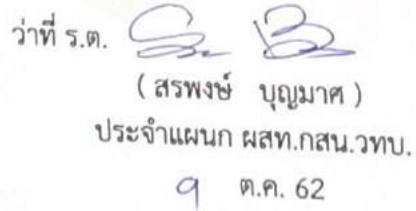 ว่าที่ ร.ต.
( สรพงษ์ บุญมาศ )
ประจำแผนก ผสท.กสน.วทบ.
๑ ต.ค. 62